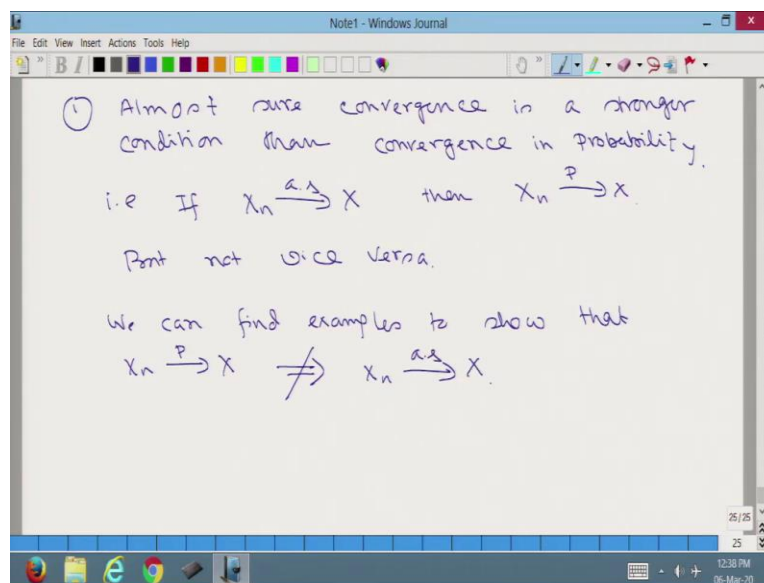 Note1 - Windows Journal
File Edit View Insert Actions Tools Help
B I
① Almost sure convergence is a stronger
condition than convergence in Probability.
i.e If Xn —a.s→ X then Xn —P→ X.
But not vice versa.
We can find examples to show that
Xn —P→ X ⇏ Xn —a.s→ X.
25/25
25
12:38 PM
06-Mar-20